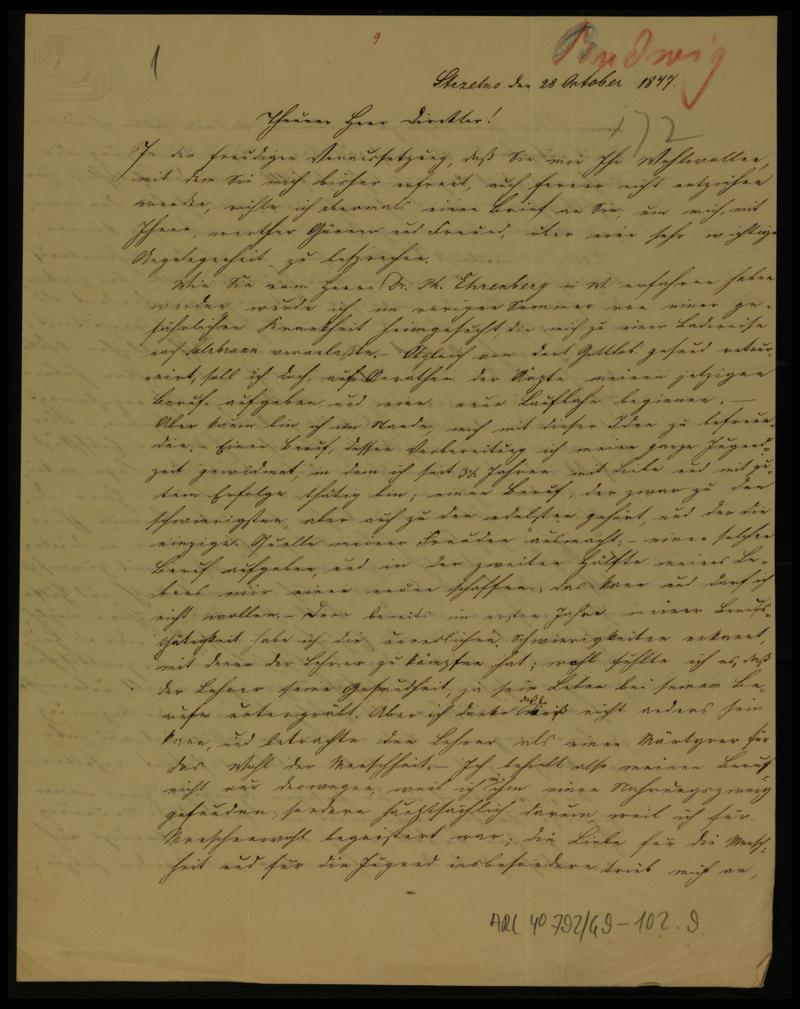 1
9
Budwig
Strzelno den 28 October 1847.
+)2
Theurer Herr Direktor!
In der freudigen Voraussetzung, daß Sie mir Ihr Wohlwollen,
mit dem Sie mich bisher erfreut, auch ferner nicht entziehen
werden, richte ich abermals einen Brief an Sie, um mich mit
Ihnen, werther Gönner und Freund, über eine sehr wichtige
Angelegenheit zu besprechen.
Wie Sie vom Herrn Dr. Ph. Ehrenberg in W. erfahren haben
werden, wurde ich im vorigen Sommer von einer ge-
fährlichen Krankheit heimgesucht die mich zu einer Badereise
nach Salzbrunn veranlaßte. – Obgleich von dort, Gottlob gesund retour-
nirt, soll ich doch, auf Anrathen der Ärzte meinen jetzigen
Beruf aufgeben und eine neue Laufbahn beginnen. –
Aber kaum bin ich im Stande, mich mit dieser Idee zu befreun-
den. – Einen Beruf, dessen Vorbereitung ich meine ganze Jugend-
zeit gewidmet, in dem ich seit 3½ Jahren mit Liebe und mit gu-
tem Erfolge thätig bin; einen Beruf, der zwar zu den
schwierigsten, aber auch zu den edelsten gehört, und der die
einzige Quelle meiner Freuden ausmacht; – einen solchen
Beruf aufgeben, und in der zweiten Hälfte meines Le-
bens mir einen neuen schaffen; das kann und darf ich
nicht wollen. – Denn bereits im ersten Jahre meiner Berufs-
thätigkeit habe ich die unendlichen Schwierigkeiten erkannt,
mit denen der Lehrer zu kämpfen hat; wohl fühlte ich es, daß
der Lehrer seine Gesundheit, ja sein Leben bei seinem Be-
rufe untergräbt. Aber ich dachte daß es nicht anders sein
kann, und betrachte den Lehrer als einen Märtyrer für
das Wohl der Menschheit. – Ich behielt also meinen Beruf
nicht nur deswegen, weil ich in ihm einen Nahrungszweig
gefunden, sondern hauptsächlich darum, weil ich für
Menschenwohl begeistert war; die Liebe für die Mensch-
heit und für die Jugend insbesondere trieb mich an,
ARC 4º 792/G9-102.9